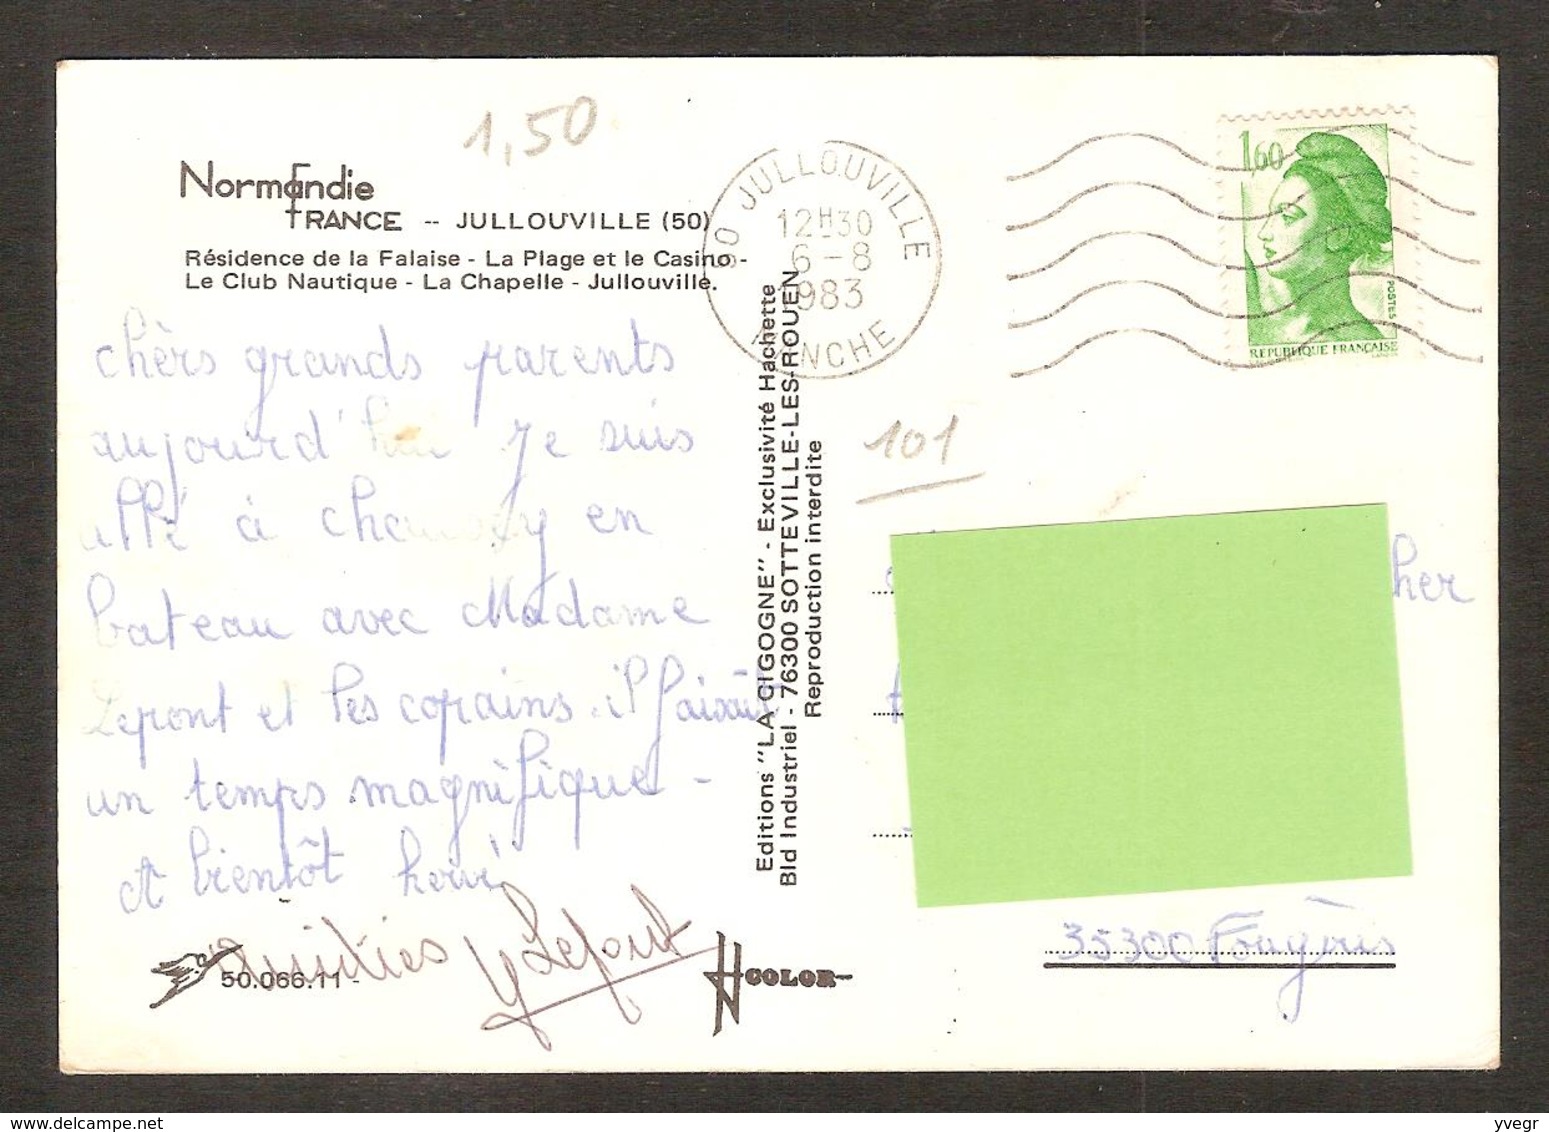 1,50
Normandie
FRANCE -- JULLOUVILLE (50)
Résidence de la Falaise - La Plage et le Casino -
Le Club Nautique - La Chapelle - Jullouville.
chèrs grands parents
aujourd'hui je suis
allé à chausey en
bateau avec Madame
Lepont et les copains. il faisait
un temps magnifique -
A bientôt hervé
Amitiés Y Lepont
50.066.11 -
COLOR
Editions "LA CIGOGNE" - Exclusivité Hachette
Bld Industriel - 76300 SOTTEVILLE-LES-ROUEN
Reproduction interdite
50 JULLOUVILLE
12H30
6-8
1983
MANCHE
1,60
POSTES
REPUBLIQUE FRANÇAISE
101
cher
35300 Fougères
yvegr